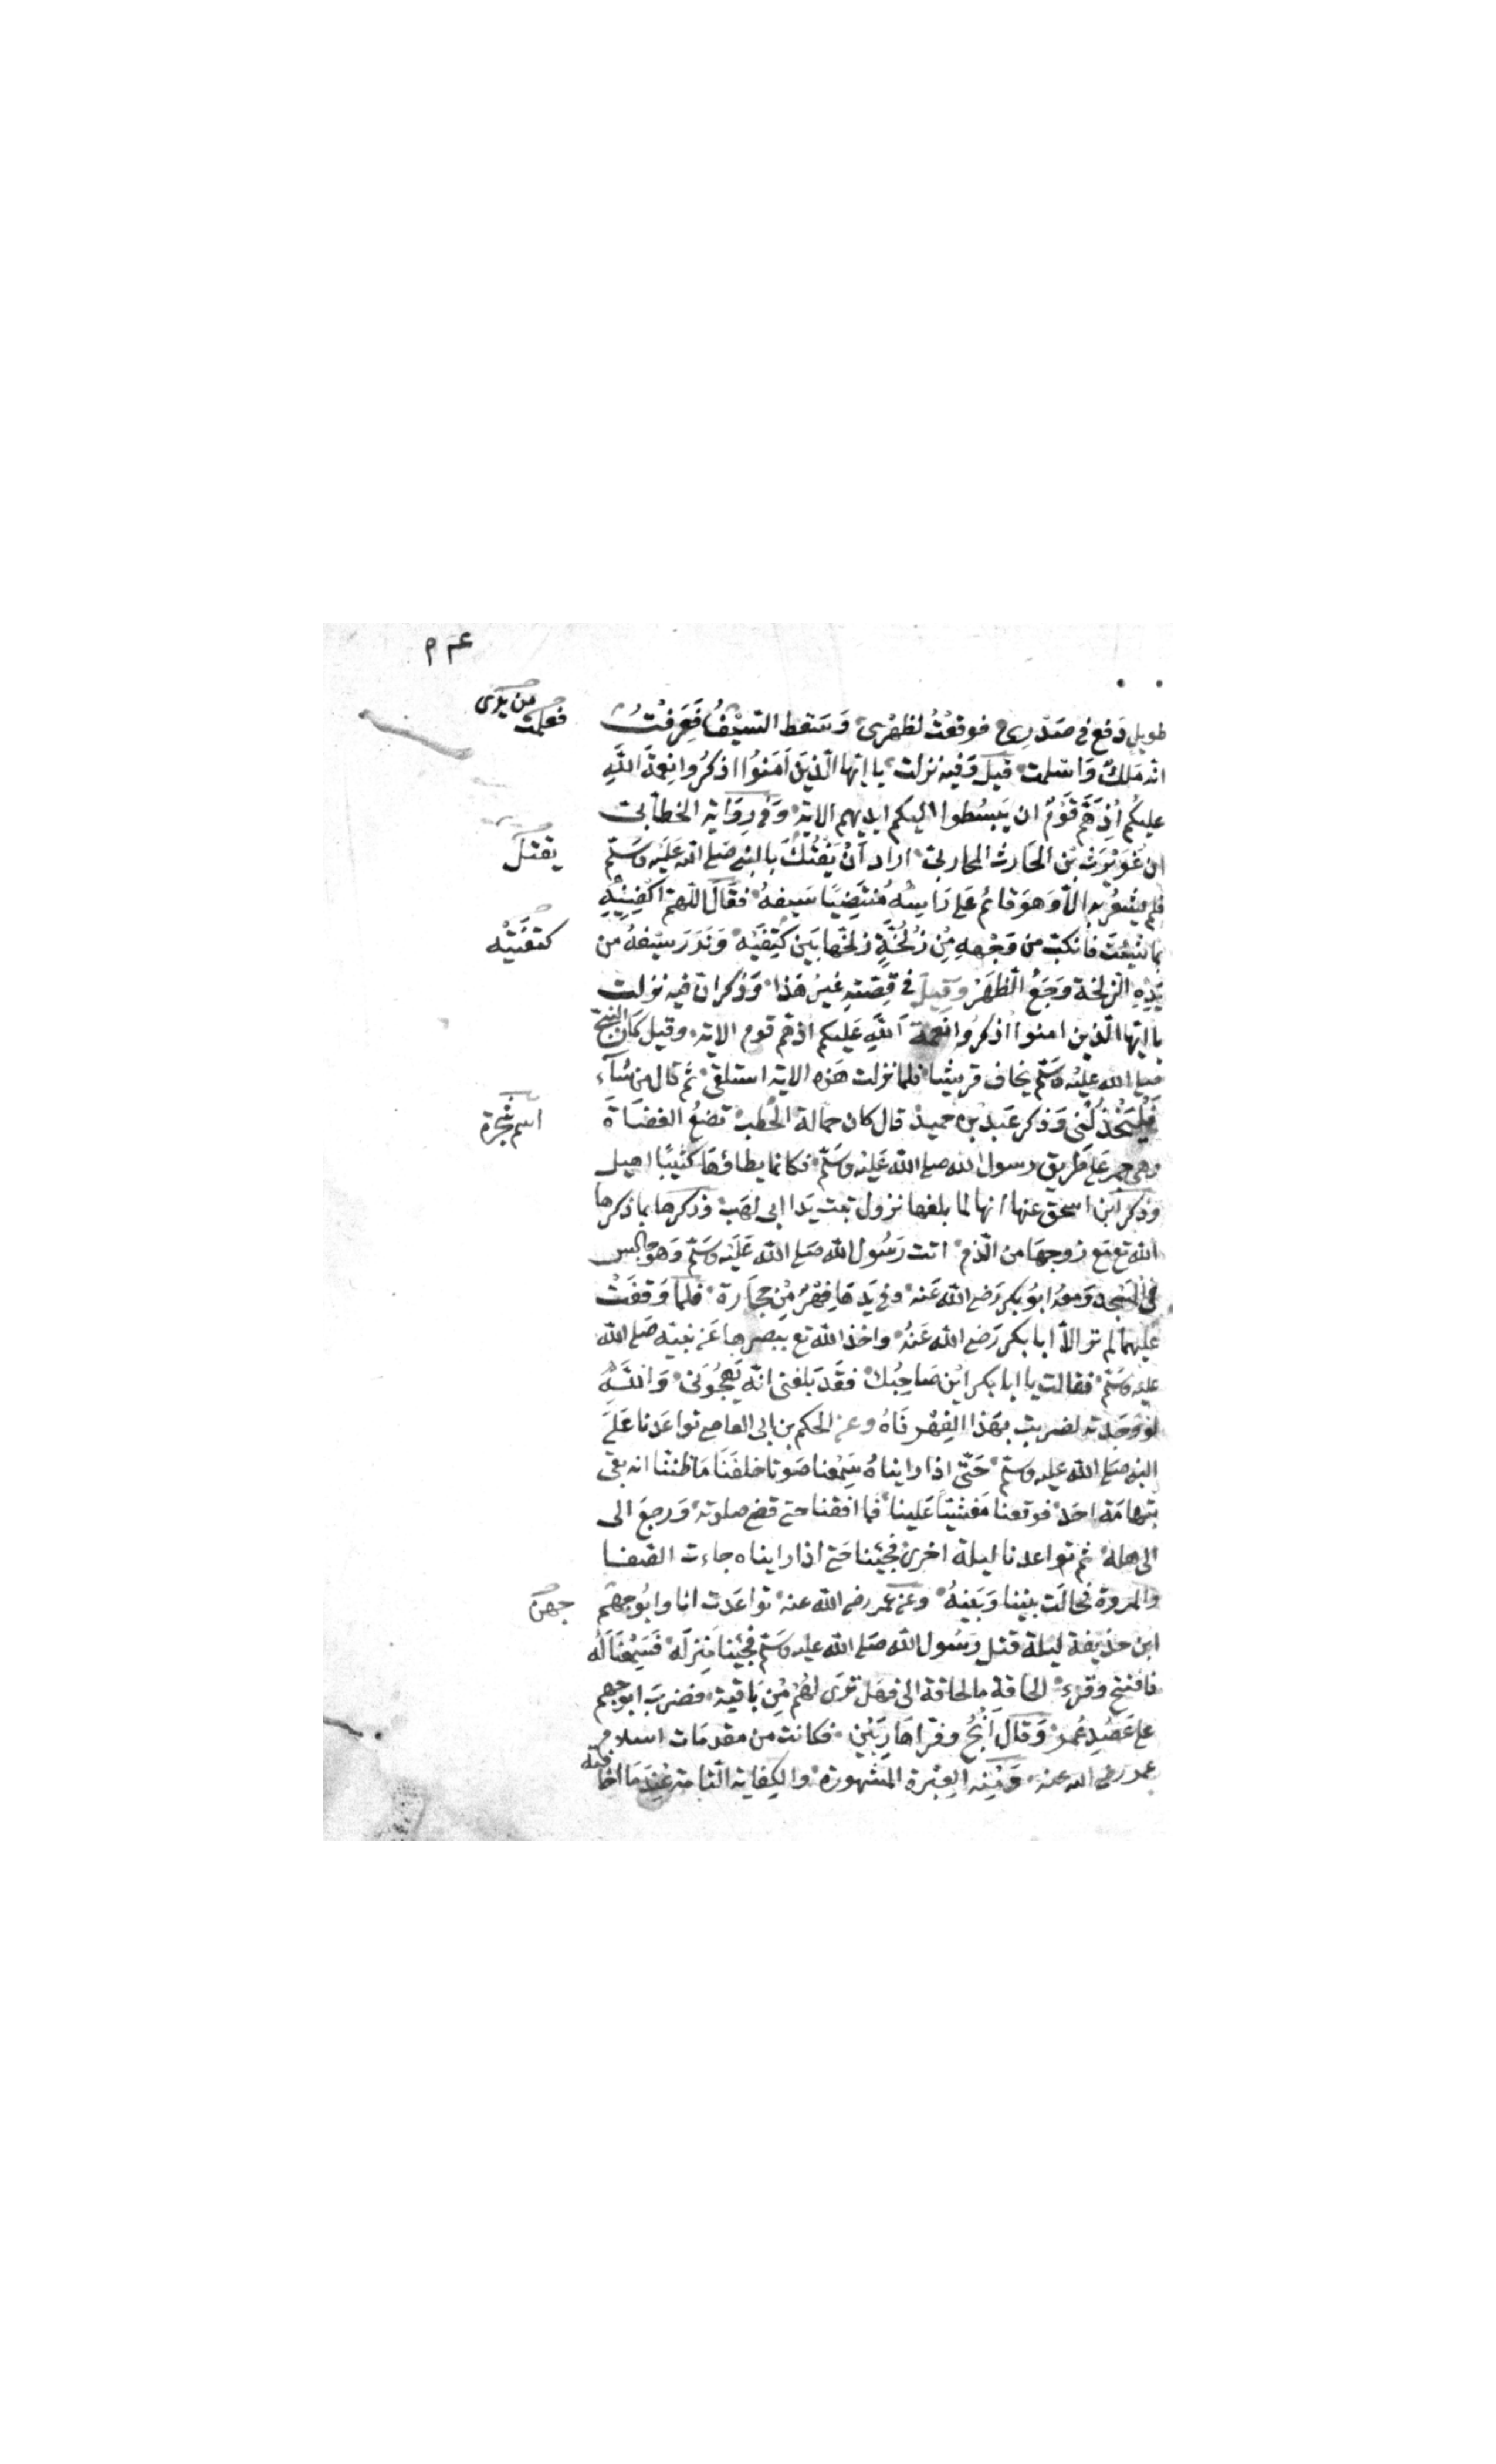 من يدى
فعلمت
طويل دفع في صَدْرِى فوقعْتُ لظهْرى وَسَقط السّيْفُ فَعَرفْتُ
انه مَلكٌ وَاسْلمت قيل وَفيه نزلت يا ايّها الّذينَ آمَنوُا اذكرُوا نِعمَةَ اللّهِ
عليكُم اذهَمَّ قَوْمٌ ان يَبسُطوا اليكم ايديهم الاية وَفى رِوَاية الخطابى
ان غَوْرَث بْن الحَارث المحاربى اراد اَنْ يَفْتُكَ بالنبى صَلى الله عَليْه وَسَلّم
يقتل
فلم يشعُرْ به الاّ وَهوَ قائم عَلى رَاسِهُ مُنتَضِيًا سَيفهُ فقَالَ اللّهمّ اكفِينِيْهِ
بما شِئتَ فانكبّ من وَجْههِ مِن زُلّخَةٍ زلخَها بَين كَتِفَيْه وَنَدَرَ سَيْفهُ من
كتفَيْه
يَدِهِ الزلخة وَجَعُ الظهَرْ وقيلَ فى قِصّتهِ غيرُ هَذا وَذُكر ان فيه نزلت
يا ايّها الّذين امنوا اذكرُوا نعمَة اللّهِ عَليكم اذ هَمّ قوم الاية وقيل كَان النبىّ
صلى الله عليْه وَسَلّم يخاف قريشا فلما نزلت هَذه الاية استلقى ثم قال من شآء
فَلْيَخذُلْنى وَذكر عَبد بن حميد قال كان حمالة الحَطب تضَعُ العضَاة
اسم شجرة
وهى جمر عَلى طَريق رسول الله صلى الله عَليْه وَسَلّم فكانما يطاؤهَا كثيبًا اهيل
وَذكَر ابن اسحق عنها انها لما بلغها نزول تبت يَدا ابى لهَب وذكرها بما ذكرها
الله تع مَع زوجهَا من الّذم اتت رَسُول الله صَلى الله عَليْه وَسَلّم وَهوَ جالس
فى المَسْجد وَمعَهُ ابوُ بكر رَضى الله عَنه وفى يَدهَا فِهْرٌ مِنْ حجَارة فلما وَقفَتْ
عَليهما لم تر الاّ ابا بكر رَضى الله عَنهُ واخذ الله تع ببصرها عَن نبيّه صَلى الله
عليْه وَسَلّم فقالت يا ابا بكر ايْن صَاحِبُك فقَد بَلغنى انّه يَهجُوُنى وَاللّهِ
لوْ وَجَدته لضربت بهَذا الفِهْر فَاهُ وعن الحكم بن ابى العاصى تواعَدنا عَلى
النبى صَلى الله عليْه وسلّم حَتّى اذا رايناهُ سَمِعْنا صَوْتا خلفَنَا مَا ظننّا انه بقى
بتهَامَة احَد فوقعنا مَغشيّا عَلينا فما افقنا حتى قضى صلوته وَرجَعَ الى
الى اهله ثم تواعدنا ليلة اخرى فجئنا حَتى اذا رايناه جاءت الصّفا
والمروة فحالَت بيْننا وَبَينهُ وعَن عمر رضى الله عنه تواعَدت انا وابوُجهْم
جهْم
ابن حذيفة ليلة قتل رَسُول الله صَلى الله عليه وَسَلّم فجئنا مَنزلَه فَسَمِعْنَا لَه
فافتتح وقرء الحاقة ما الحاقة الى فهَل ترى لهُمْ مِن بَاقية فضرَب ابوجهم
على عَضُدِ عُمرَ وَقالَ اُنْجُ وفرّا هَارِبَيْنِ فكانت من مقدمَات اسلام
عمر رضى الله عنه وَمِنْه العِبْرة المشهورة والكِفاية التّامة عندَ مَا اخافته